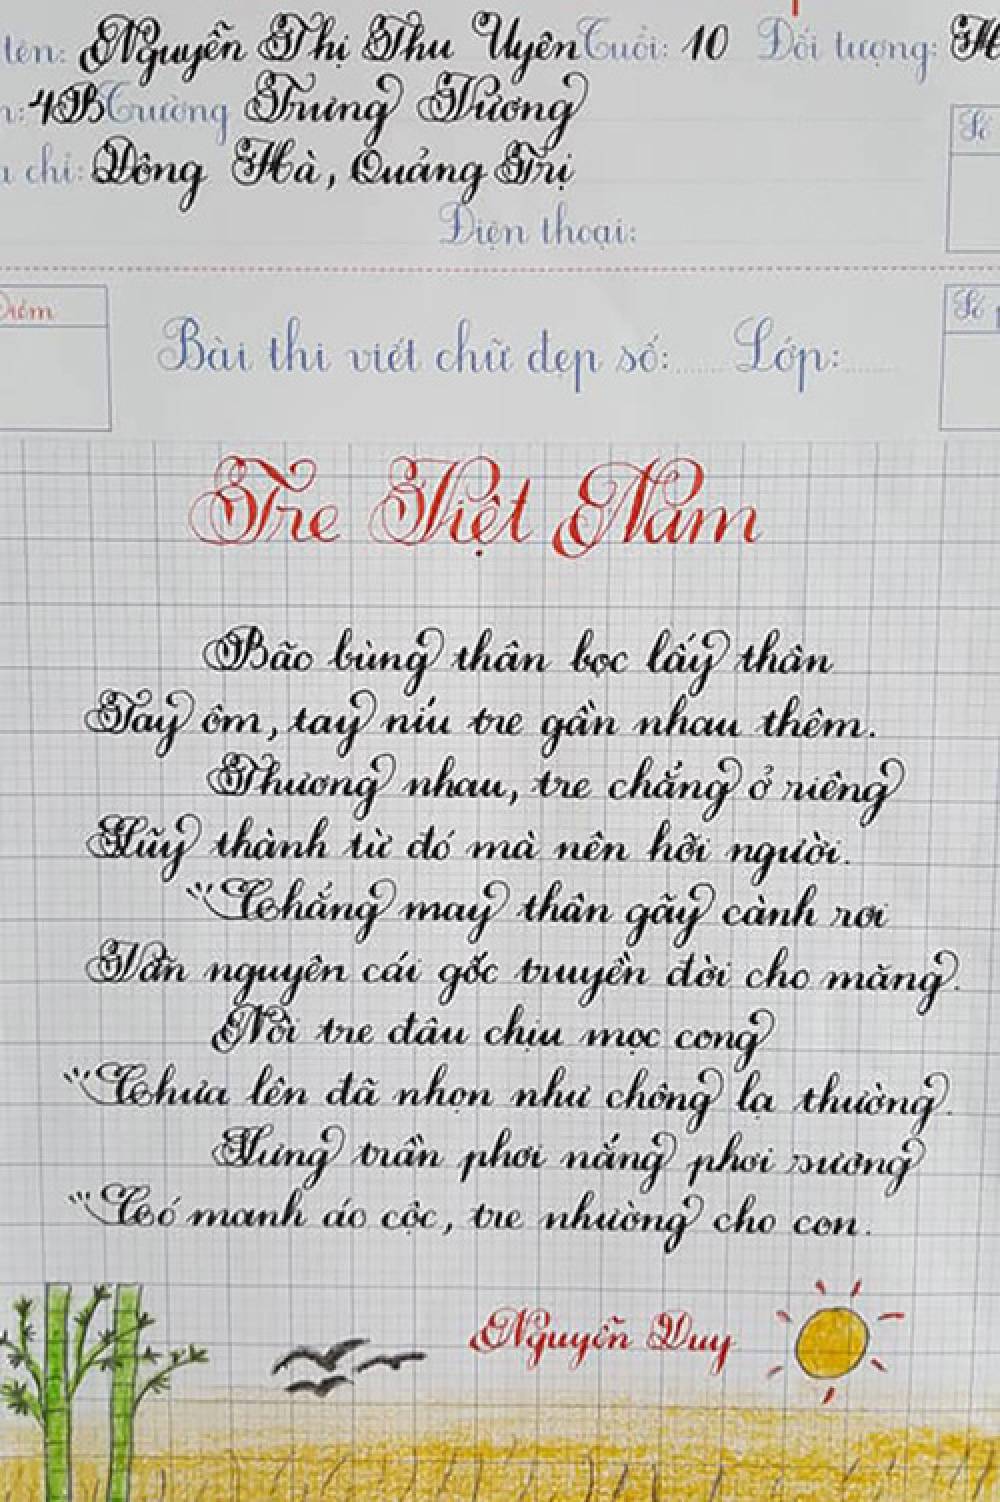 tên: Nguyễn Thị Thu Uyên Tuổi: 10 Đối tượng: H
4B Trường Trưng Vương
chỉ: Đông Hà, Quảng Trị
Điện thoại:
Điểm
Số
Bài thi viết chữ đẹp số: Lớp:
Số
Tre Việt Nam
Bão bùng thân bọc lấy thân
Tay ôm, tay níu tre gần nhau thêm.
Thương nhau, tre chẳng ở riêng
Lũy thành từ đó mà nên hỡi người.
Chẳng may thân gãy cành rơi
Vẫn nguyên cái gốc truyền đời cho măng.
Nòi tre đâu chịu mọc cong
Chưa lên đã nhọn như chông lạ thường.
Lưng trần phơi nắng phơi sương
Có manh áo cộc, tre nhường cho con.
Nguyễn Duy